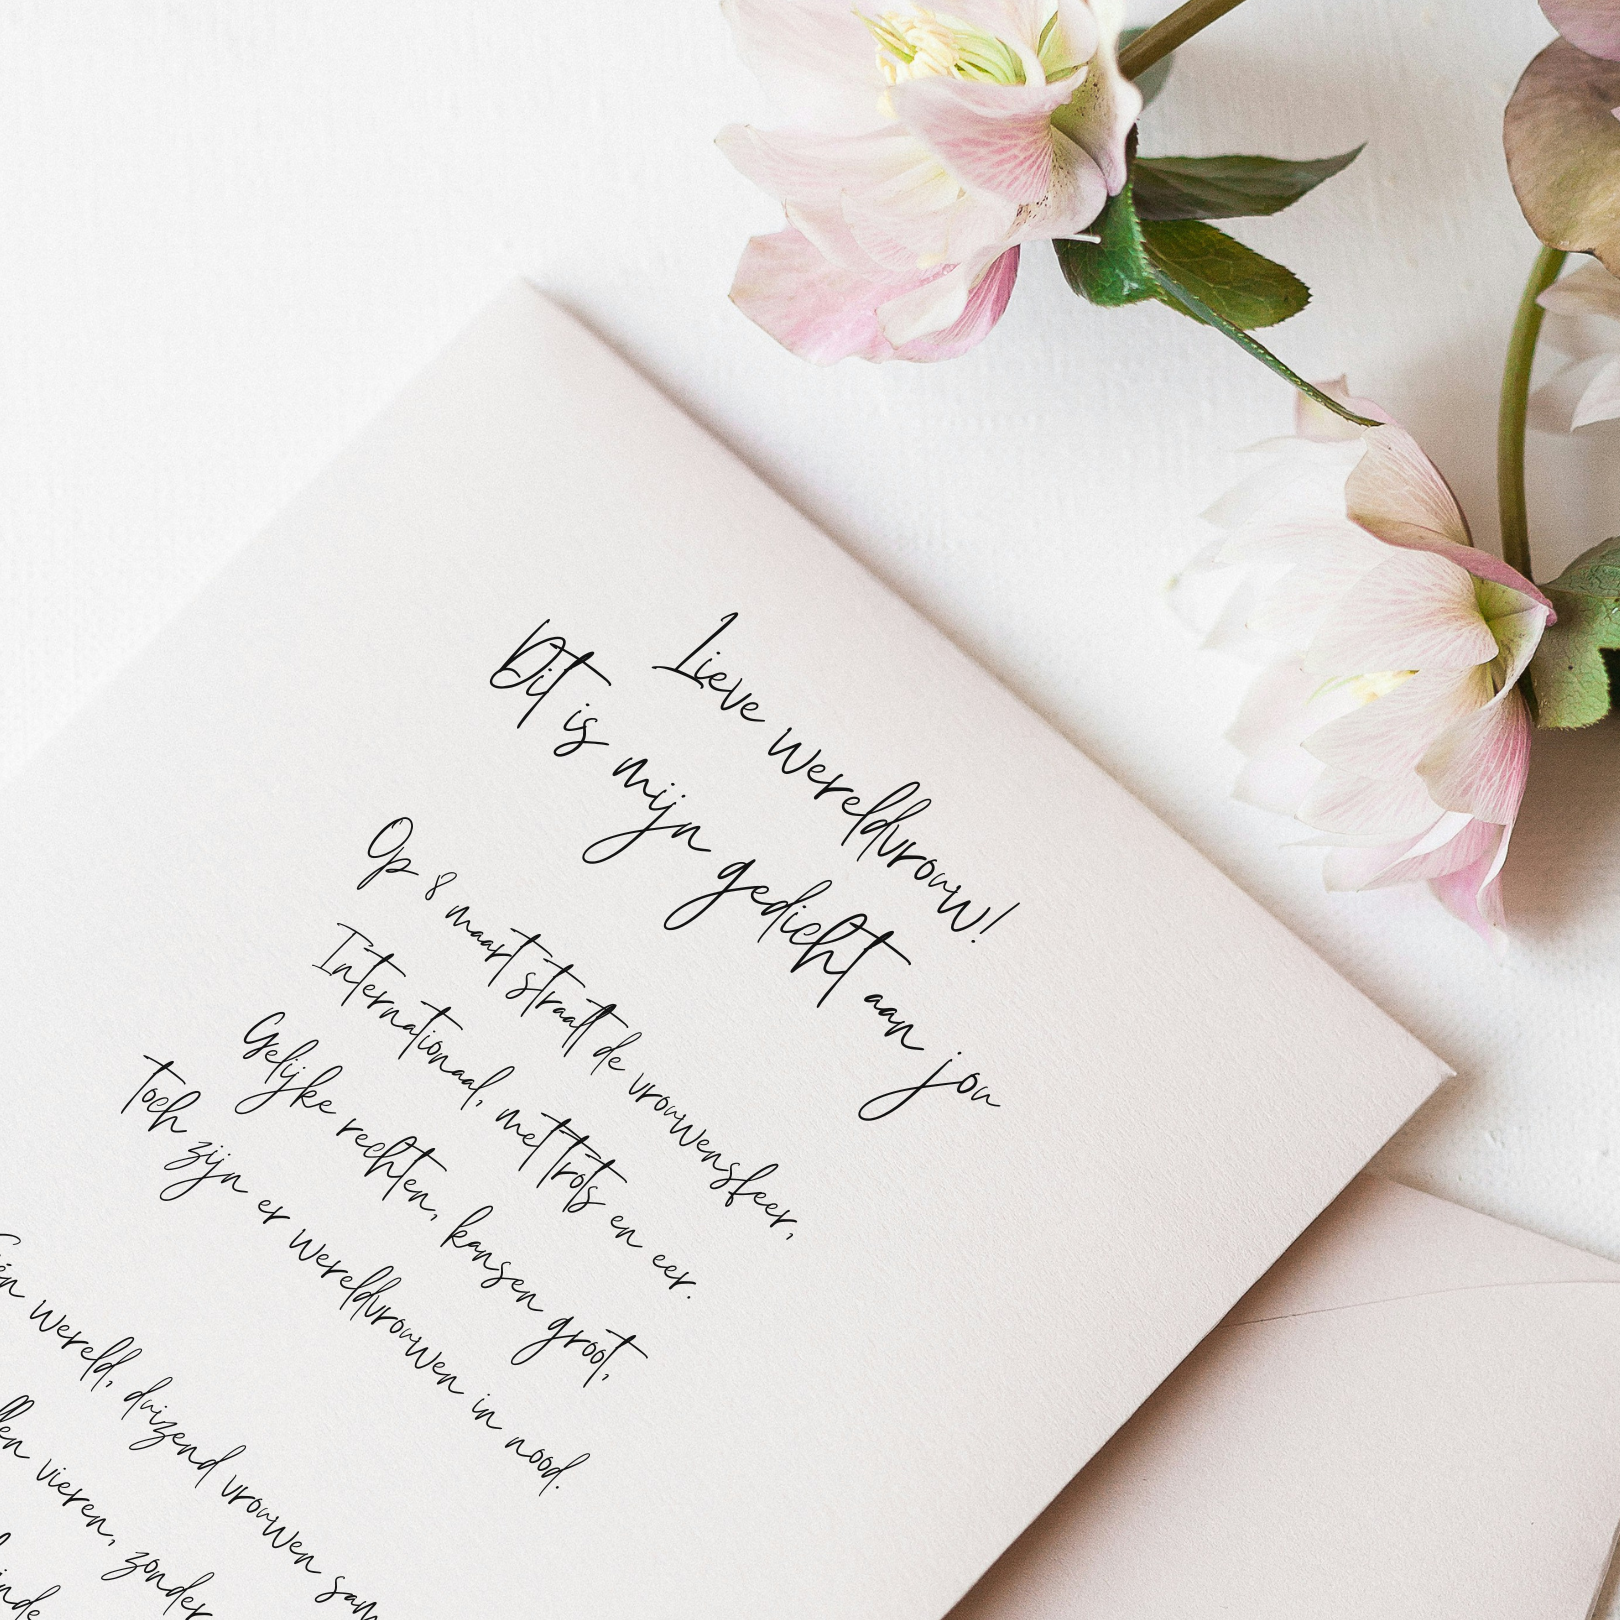 Lieve wereldvrouw!
Dit is mijn gedicht aan jou
Op 8 maart straalt de vrouwensfeer,
Internationaal, met trots en eer.
Gelijke rechten, kansen groot,
Toch zijn er wereldvrouwen in nood.
Eén wereld, duizend vrouwen
vieren, zonder